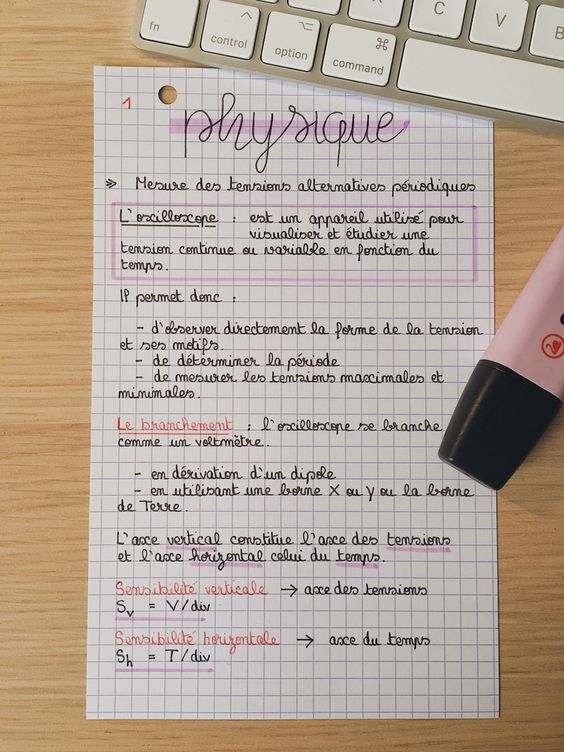 fn
control
option
⌘
command
C
V
B
1
physique
» Mesure des tensions alternatives périodiques
L'oscilloscope : est un appareil utilisé pour
visualiser et étudier une
tension continue ou variable en fonction du
temps.
Il permet donc :
- d'observer directement la forme de la tension
et ses motifs.
- de déterminer la période
- de mesurer les tensions maximales et
minimales.
Le branchement : l'oscilloscope se branche
comme un voltmètre.
- en dérivation d'un dipole
- en utilisant une borne X ou Y ou la borne
de Terre.
L'axe vertical constitue l'axe des tensions
et l'axe horizontal celui du temps.
Sensibilité verticale → axe des tensions
Sv = V/div
Sensibilité horizontale → axe du temps
Sh = T/div